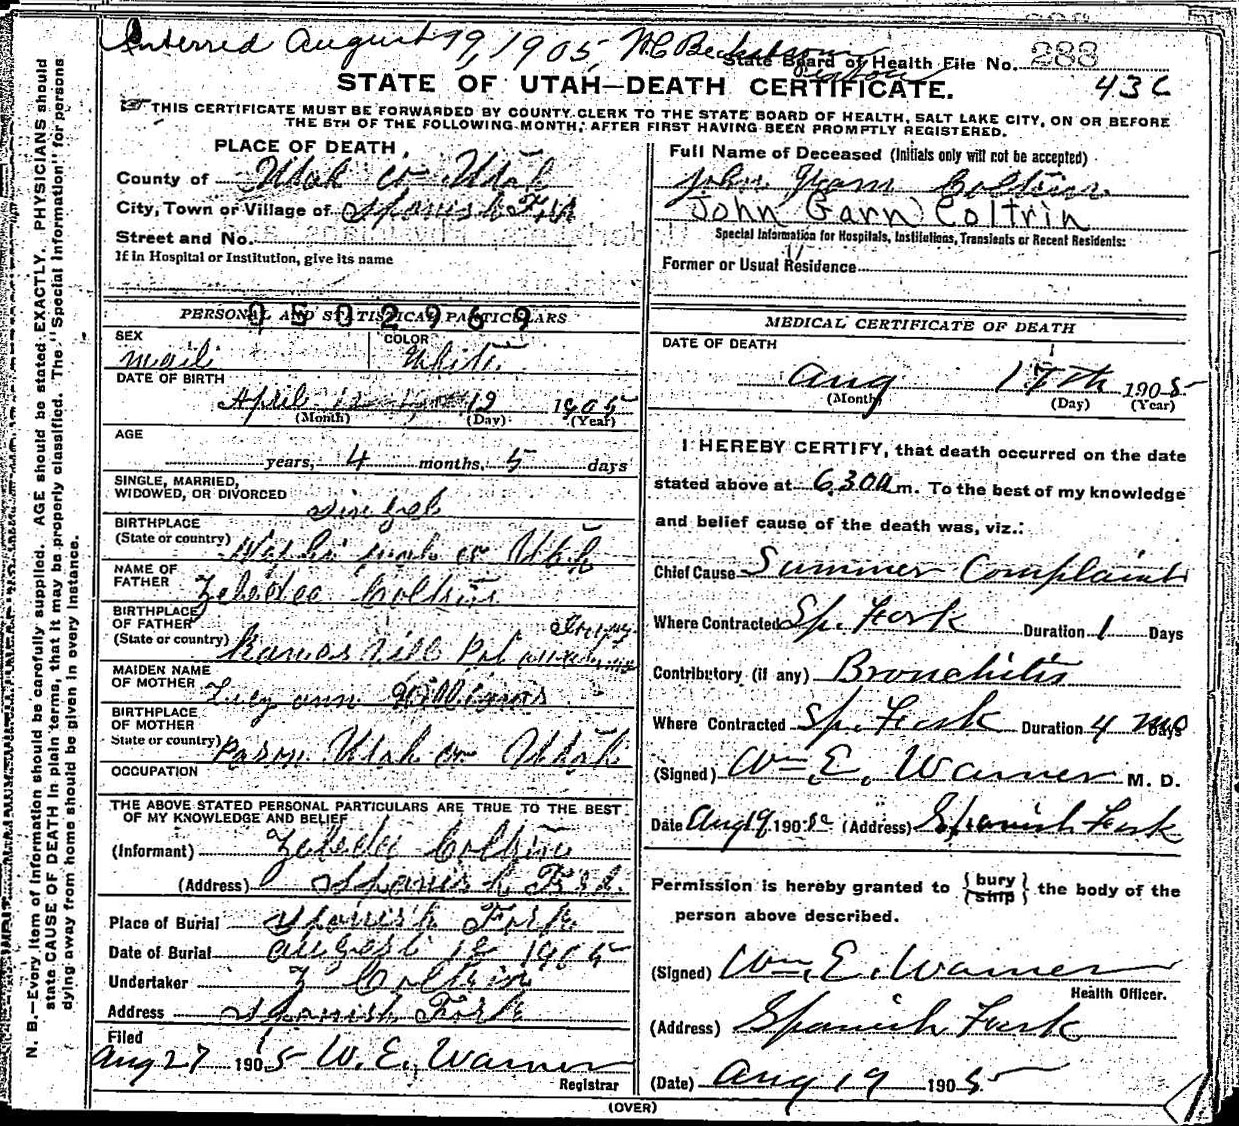 Interred August 19, 1905, W.C. Beckstrom
Sexton
State Board of Health File No. 288
43C
STATE OF UTAH—DEATH CERTIFICATE.
THIS CERTIFICATE MUST BE FORWARDED BY COUNTY CLERK TO THE STATE BOARD OF HEALTH, SALT LAKE CITY, ON OR BEFORE
THE 5TH OF THE FOLLOWING MONTH, AFTER FIRST HAVING BEEN PROMPTLY REGISTERED.
N. B.—Every item of information should be carefully supplied. AGE should be stated EXACTLY. PHYSICIANS should
state CAUSE OF DEATH in plain terms, that it may be properly classified. The "Special Information" for persons
dying away from home should be given in every instance.
PLACE OF DEATH
County of Utah co Utah
City, Town or Village of Spanish Fork
Street and No.
If in Hospital or Institution, give its name
0502969
PERSONAL AND STATISTICAL PARTICULARS
SEX COLOR
male White
DATE OF BIRTH
April 12 1905
(Month) (Day) (Year)
AGE
years, 4 months, 5 days
SINGLE, MARRIED,
WIDOWED, OR DIVORCED
BIRTHPLACE
(State or country) co Utah
NAME OF
FATHER Zebedee Coltrin
BIRTHPLACE
OF FATHER
(State or country)
MAIDEN NAME
OF MOTHER Lucy ann
BIRTHPLACE
OF MOTHER
State or country) Utah co Utah
OCCUPATION
THE ABOVE STATED PERSONAL PARTICULARS ARE TRUE TO THE BEST
OF MY KNOWLEDGE AND BELIEF
(Informant) Coltrin
(Address) Spanish Fork
Place of Burial Spanish Fork
Date of Burial 1905
Undertaker Z Coltrin
Address Spanish Fork
Filed
Aug 27 1905 W. E. Warner
Registrar
Full Name of Deceased (Initials only will not be accepted)
John Coltrin
John Garn Coltrin
Special Information for Hospitals, Institutions, Transients or Recent Residents:
Former or Usual Residence
MEDICAL CERTIFICATE OF DEATH
DATE OF DEATH
Aug 17th 1905
(Month) (Day) (Year)
I HEREBY CERTIFY, that death occurred on the date
stated above at 6.30 a m. To the best of my knowledge
and belief cause of the death was, viz.:
Chief Cause Summer Complaint
Where Contracted Sp. Fork Duration 1 Days
Contributory (if any) Bronchitis
Where Contracted Sp. Fork Duration 4 mo Days
(Signed) Wm. E. Warner M. D.
Date Aug 19 190 (Address) Spanish Fork
Permission is hereby granted to { bury ship } the body of the
person above described.
(Signed) Wm. E. Warner
Health Officer.
(Address) Spanish Fork
(Date) Aug 19 1905
(OVER)